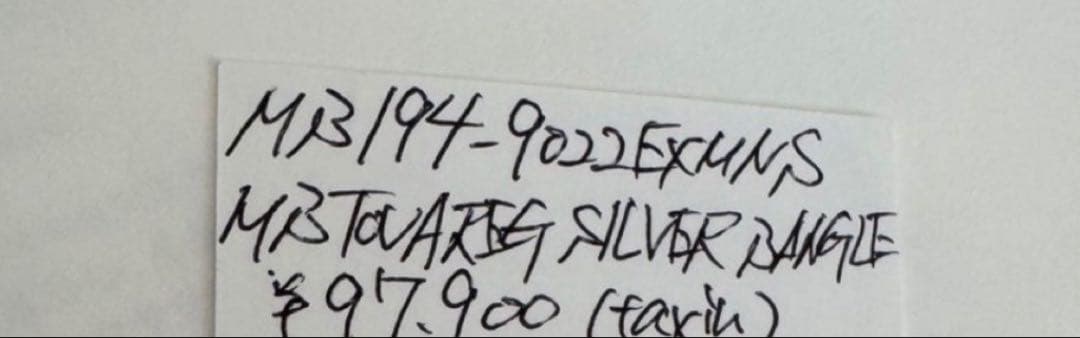 MB194-9022EXMNS
MB TOUAREG SILVER BANGLE
¥97.900 (taxin)